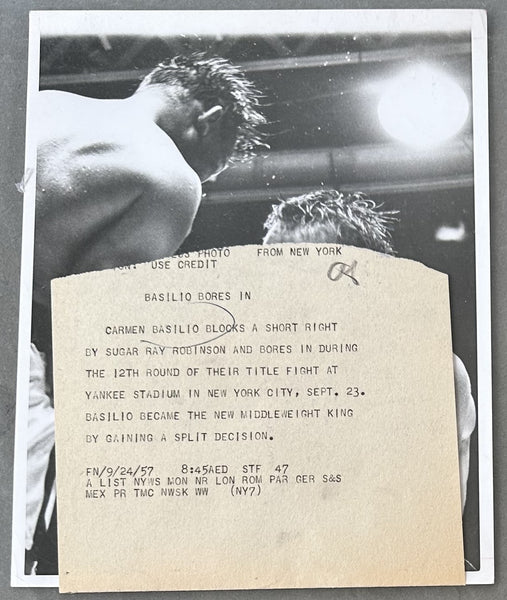 PHOTO FROM NEW YORK
USE CREDIT
BASILIO BORES IN
CARMEN BASILIO BLOCKS A SHORT RIGHT
BY SUGAR RAY ROBINSON AND BORES IN DURING
THE 12TH ROUND OF THEIR TITLE FIGHT AT
YANKEE STADIUM IN NEW YORK CITY, SEPT. 23.
BASILIO BECAME THE NEW MIDDLEWEIGHT KING
BY GAINING A SPLIT DECISION.
FN/9/24/57 8:45AED STF 47
A LIST NYWS MON NR LON ROM PAR GER S&S
MEX PR TMC NWSK WW (NY7)